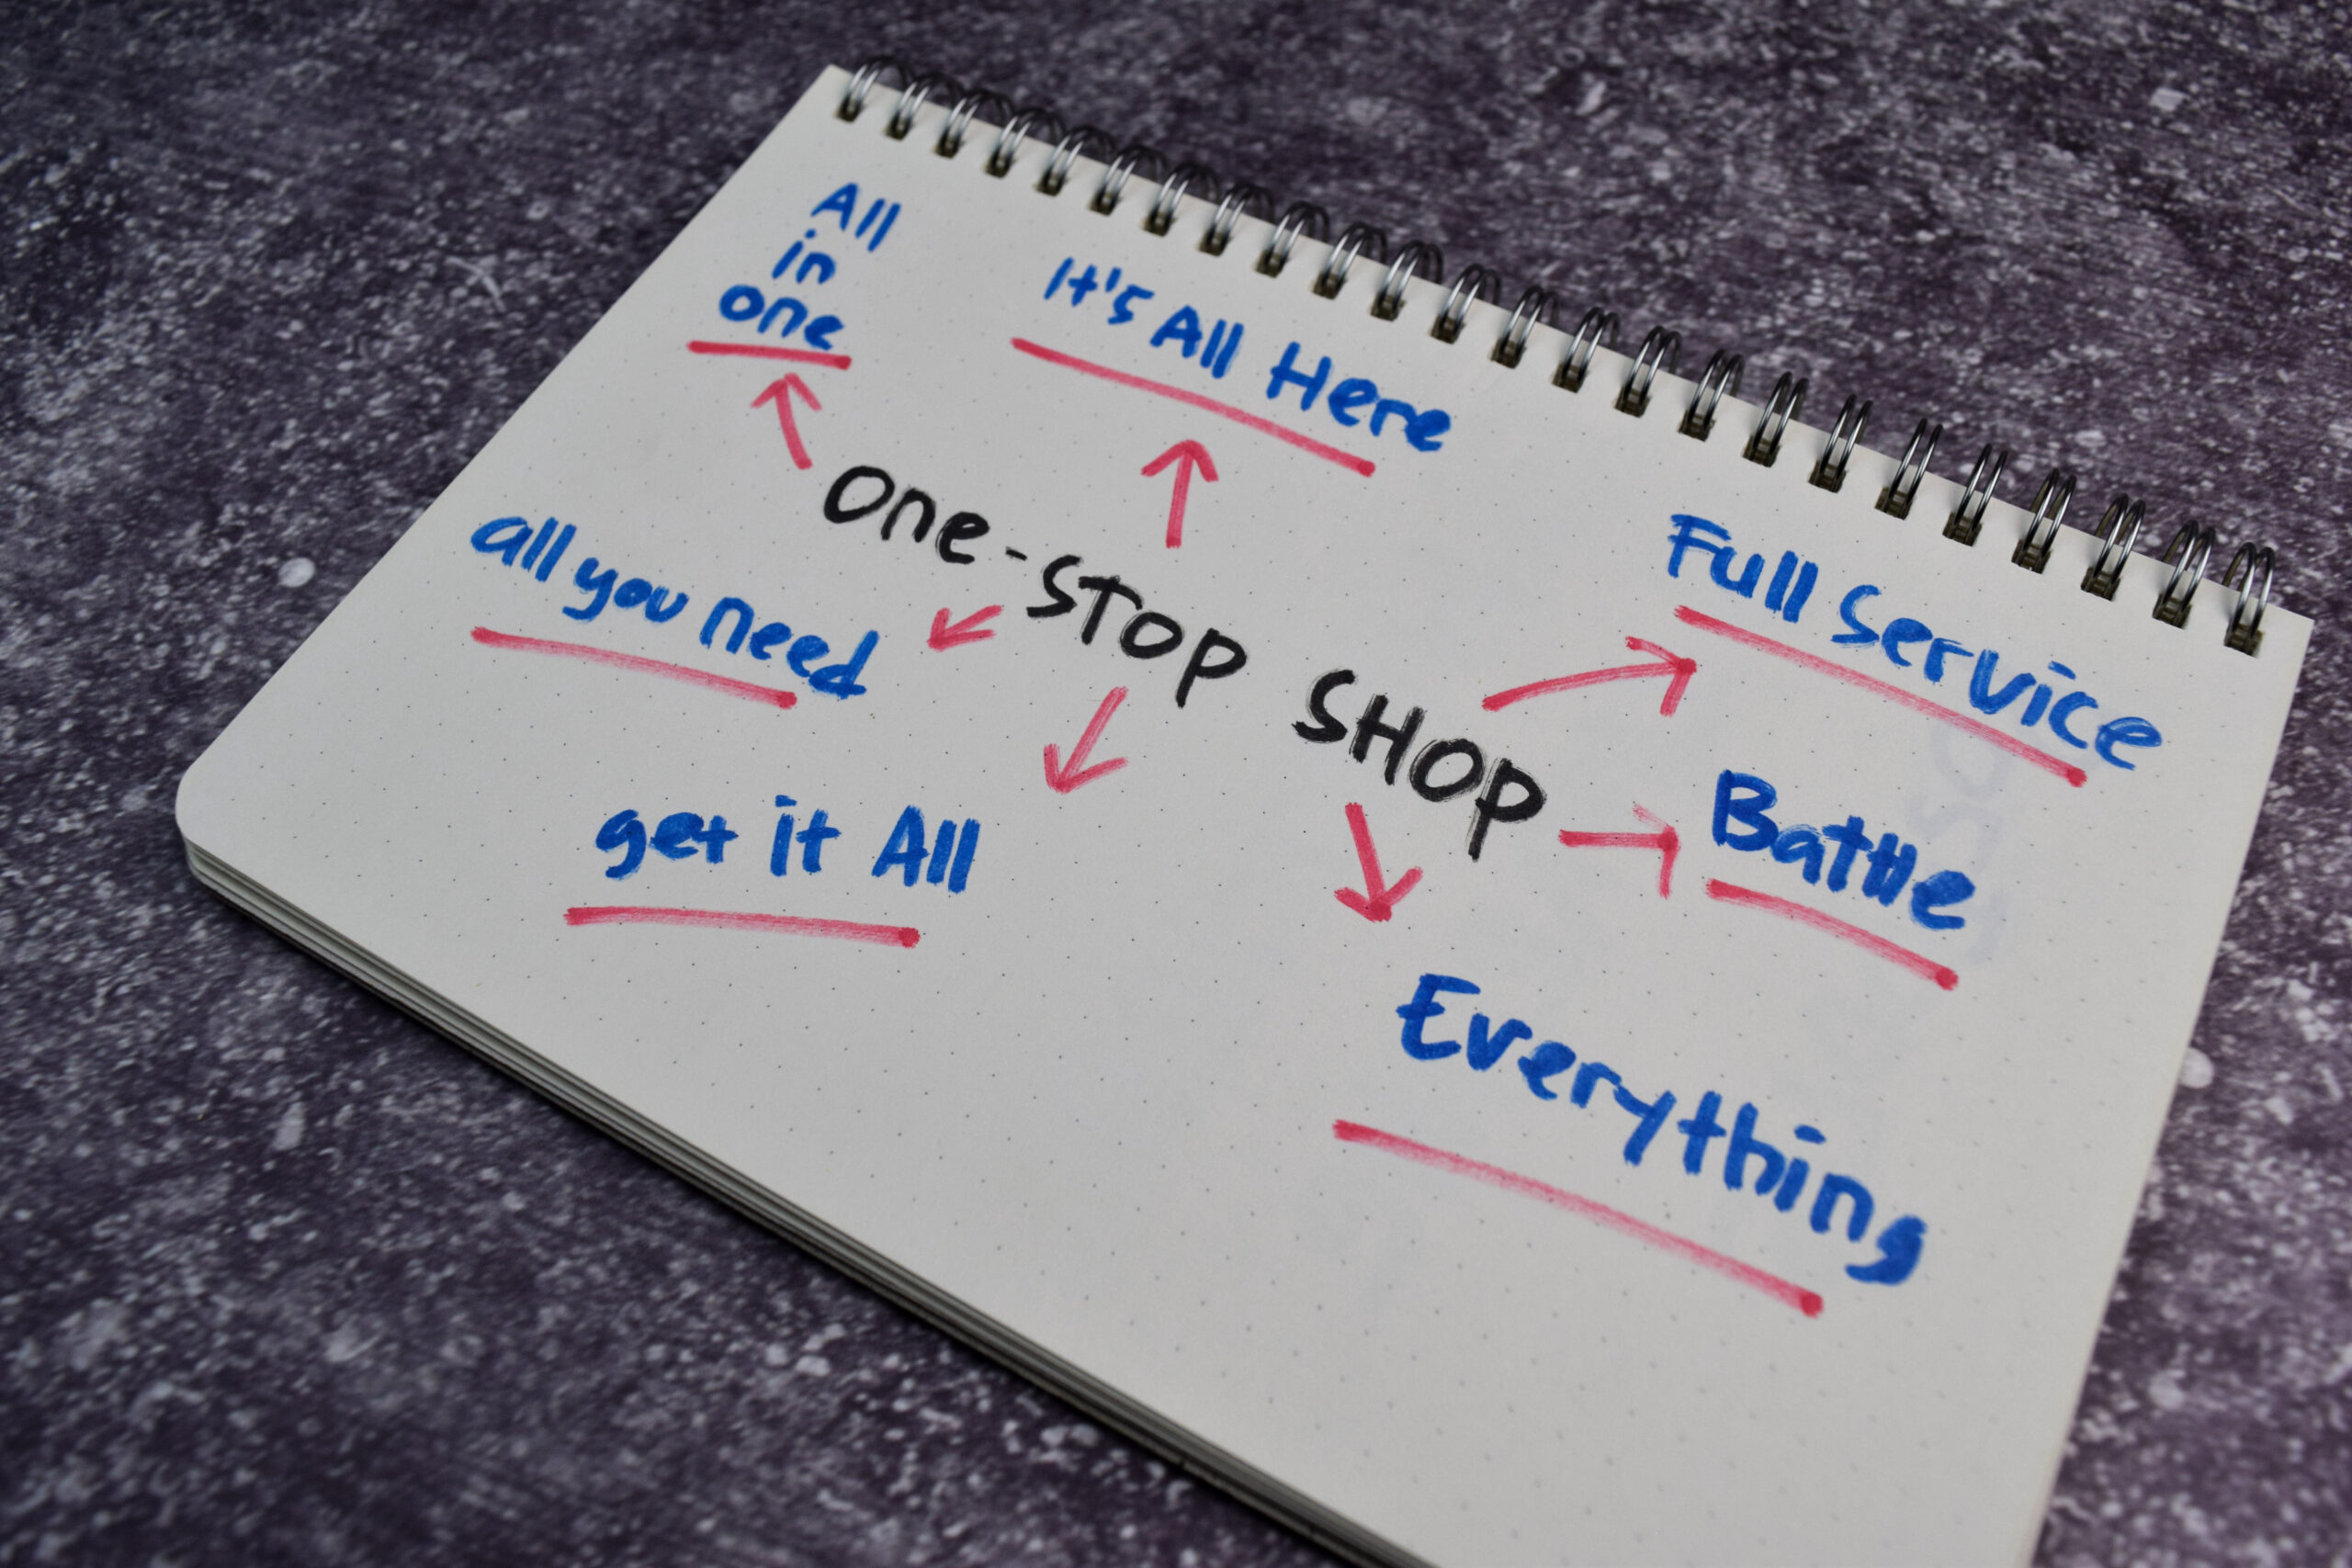 All
in
one
It's All Here
one-STOP SHOP
all you need
Full Service
get it All
Battle
Everything